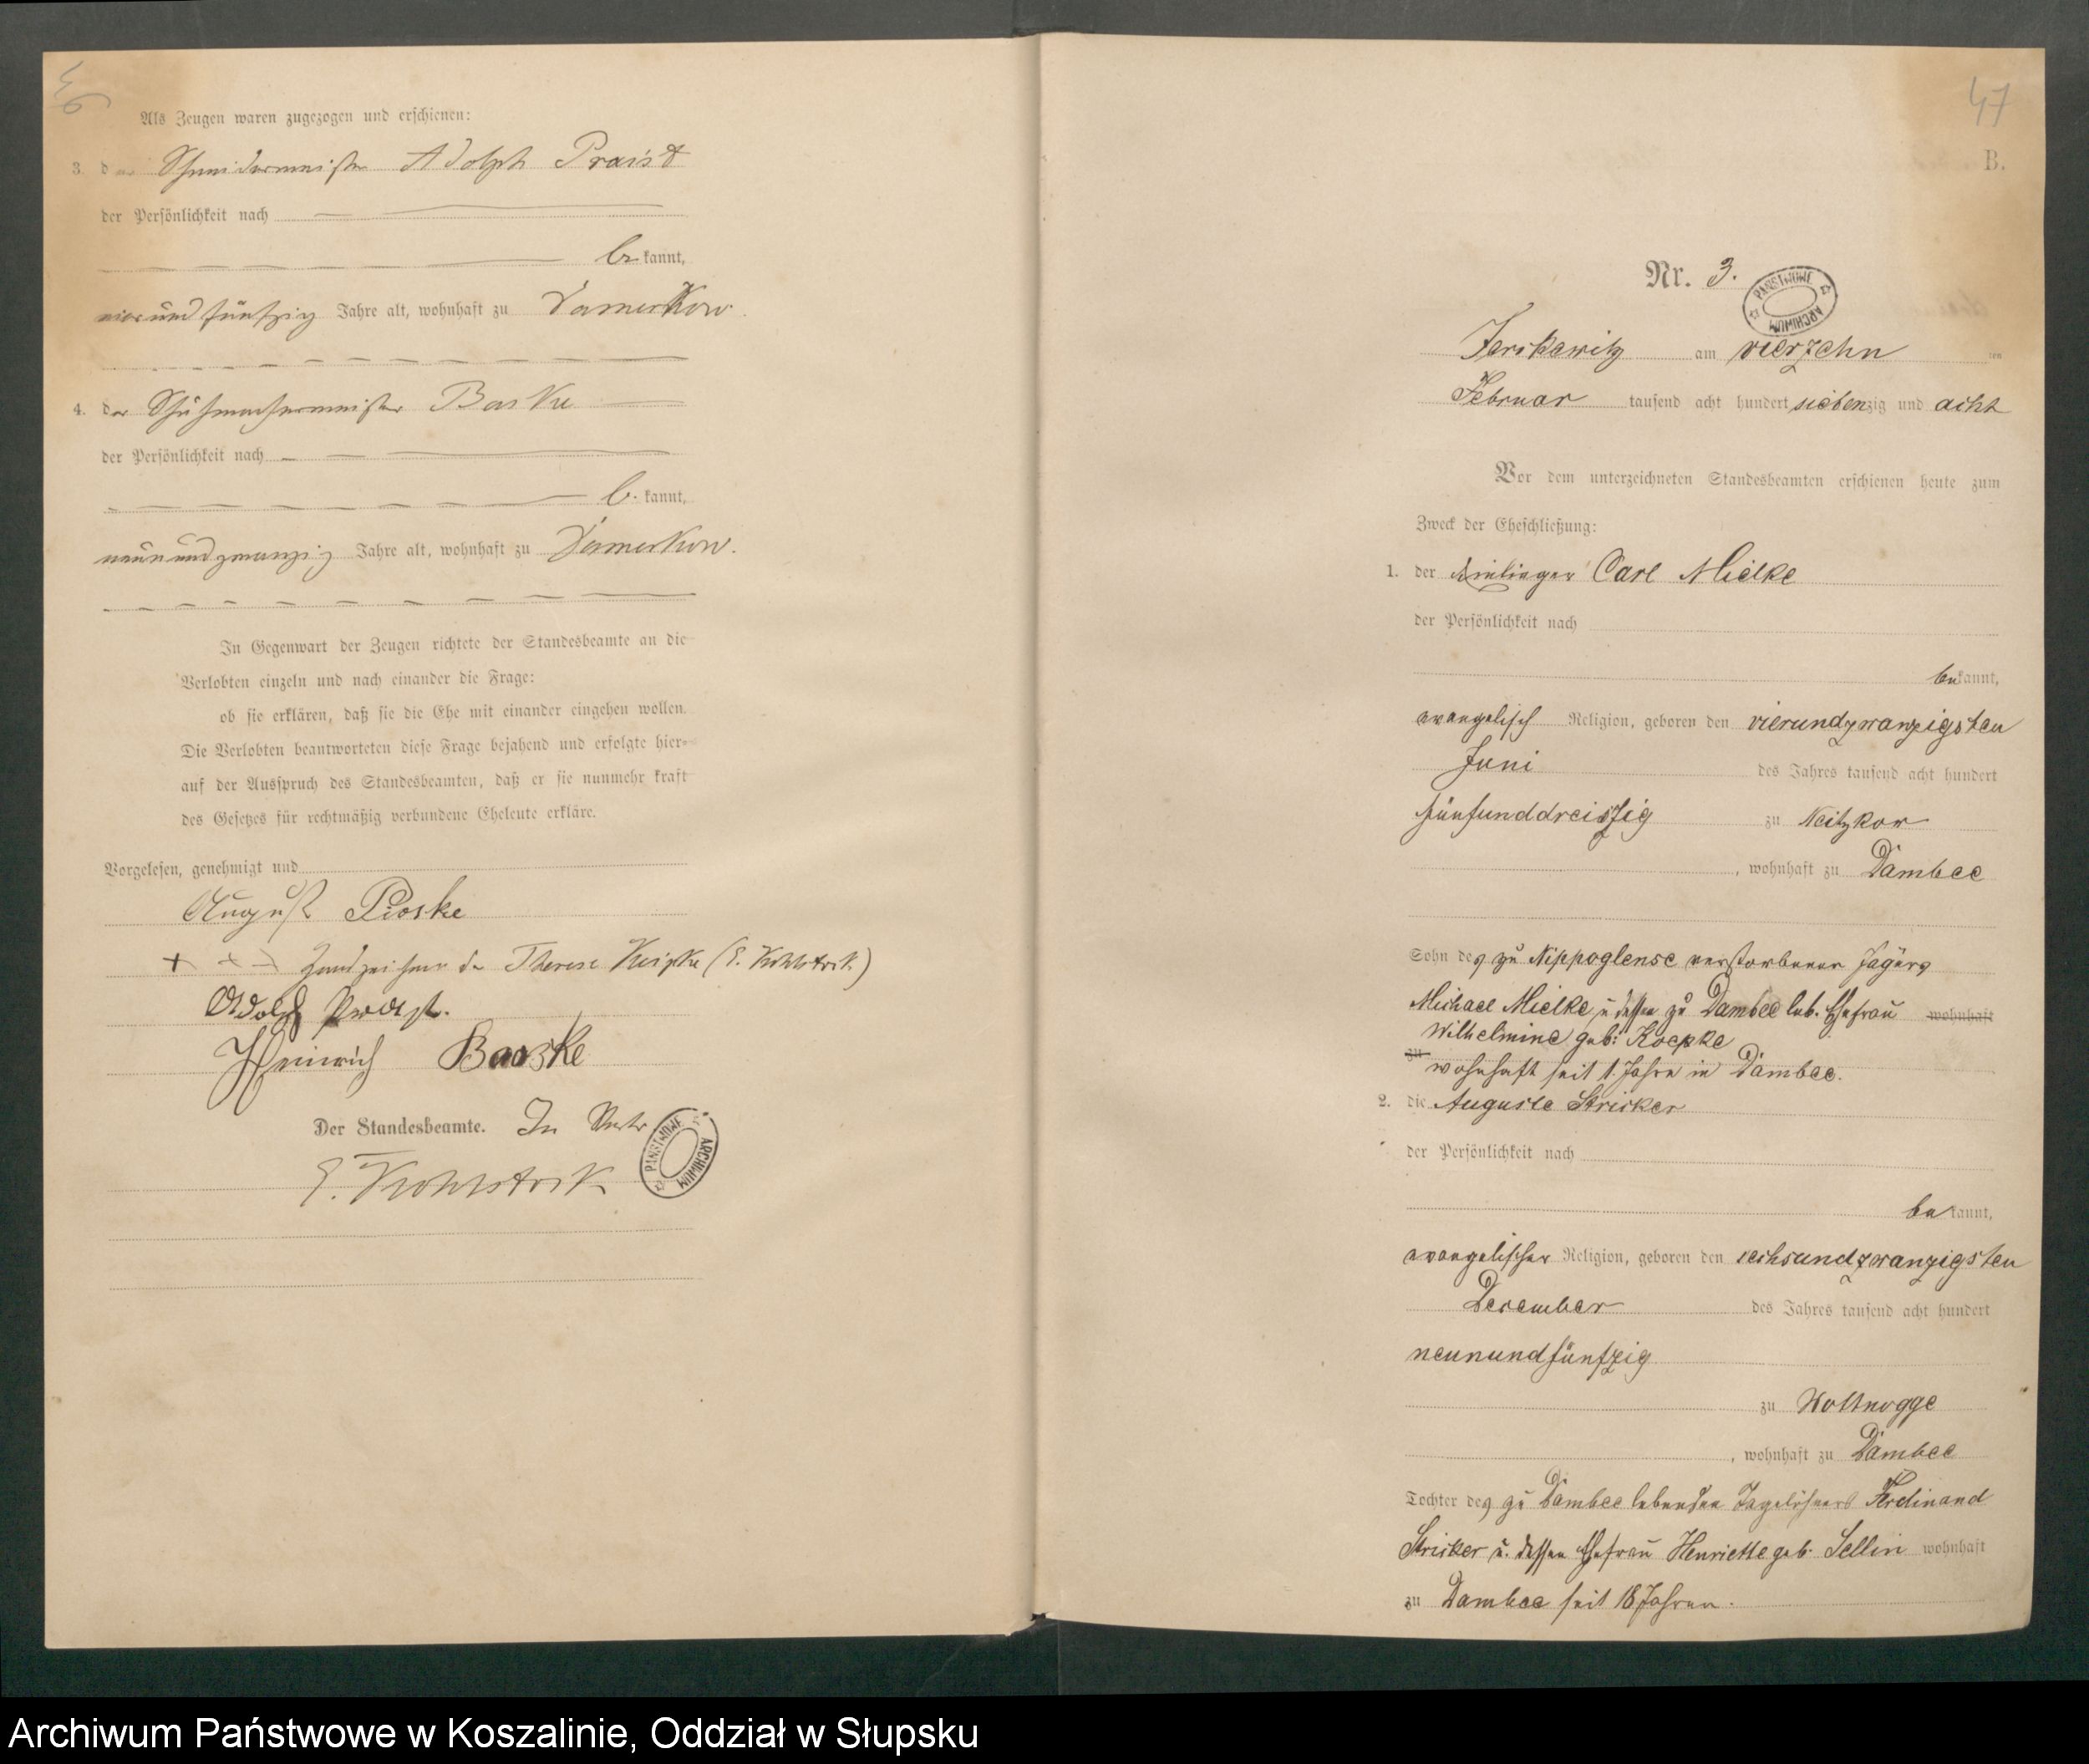 Als Zeugen waren zugezogen und erschienen:
3. der Schneidermeister Adolph Praist
der Persönlichkeit nach
be kannt,
vierundfünfzig Jahre alt, wohnhaft zu Damerkow
4. der Schuhmachermeister Baske
der Persönlichkeit nach
be kannt,
neunundzwanzig Jahre alt, wohnhaft zu Damerkow.
In Gegenwart der Zeugen richtete der Standesbeamte an die
Verlobten einzeln und nach einander die Frage:
ob sie erklären, daß sie die Ehe mit einander eingehen wollen.
Die Verlobten beantworteten diese Frage bejahend und erfolgte hier-
auf der Ausspruch des Standesbeamten, daß er sie nunmehr kraft
des Gesetzes für rechtmäßig verbundene Eheleute erkläre.
Vorgelesen, genehmigt und
August Pioske
+ + + Handzeichen der Therese (E. Kohlstock)
Adolph
Heinrich Baaske
Der Standesbeamte. In
E. Kohlstock
ARCHIWUM PAŃSTWOWE
47
B.
Nr. 3.
ARCHIWUM PAŃSTWOWE
Jerskewitz am vierzehn ten
Februar tausend acht hundert siebenzig und acht
Vor dem unterzeichneten Standesbeamten erschienen heute zum
Zweck der Eheschließung:
1. der Einlieger Carl Mielke
der Persönlichkeit nach
be kannt,
evangelisch Religion, geboren den vierundzwanzigsten
Juni des Jahres tausend acht hundert
fünfunddreiszig zu Neitzkow
, wohnhaft zu Dambee
Sohn des zu Nippoglense verstorbenen Jägers
Michael Mielke u dessen zu Dambee leb. Ehefrau wohnhaft
Wilhelmine geb: Koepke
zu wohnhaft seit 1. Jahre in Dambee.
2. die Auguste Stricker
der Persönlichkeit nach
be kannt,
evangelischer Religion, geboren den sechsundzwanzigsten
December des Jahres tausend acht hundert
neunundfünfzig
zu Wottnogge
, wohnhaft zu Dambee
Tochter des zu Dambee lebenden Tagelöhners Ferdinand
Stricker u. dessen Ehefrau Henriette geb. Sellin wohnhaft
zu Dambee seit 18 Jahren.
Archiwum Państwowe w Koszalinie, Oddział w Słupsku